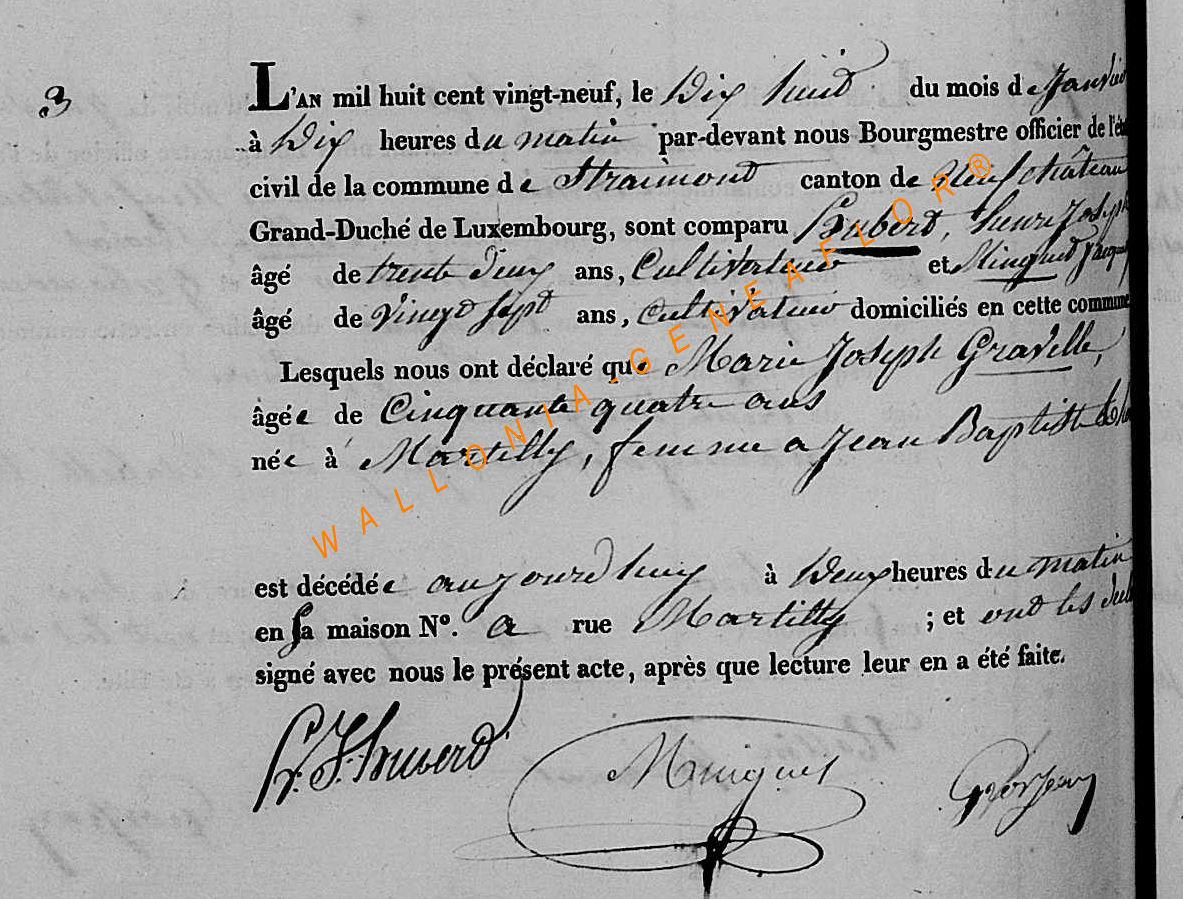 3
L'AN mil huit cent vingt-neuf, le Dix huit du mois de Janvier
à Dix heures du matin par-devant nous Bourgmestre officier de l'état
civil de la commune de Straimont canton de Neufchâteau
Grand-Duché de Luxembourg, sont comparu Hubert, henri Joseph
âgé de trente deux ans, Cultivateur et Minguet Jacques
âgé de Vingt sept ans, Cultivateur domiciliés en cette commune
Lesquels nous ont déclaré que Marie Joseph Gravelle,
âgée de Cinquante quatre ans
née à Martilly, femme a Jean Baptiste
est décédée aujourd huy à Deux heures du matin
en sa maison N°. a rue Martilly ; et ont les
signé avec nous le présent acte, après que lecture leur en a été faite.
h. J. hubert Minguet
WALLONIA.GENEAFLOR®